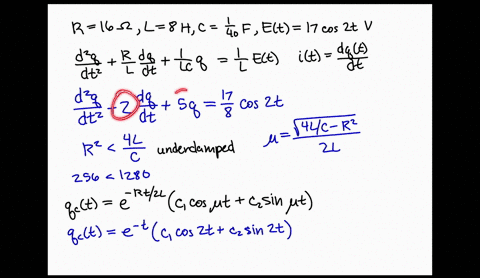 R = 16 Ω, L = 8 H, C = 1/40 F, E(t) = 17 cos 2t V
d²q/dt² + R/L dq/dt + 1/LC q = 1/L E(t) i(t) = dq(t)/dt
d²q/dt² + 2 dq/dt + 5q = 17/8 cos 2t
R² < 4L/C underdamped μ = √(4L/C − R²)/2L
256 < 1280
q_c(t) = e^(−Rt/2L) (c₁ cos μt + c₂ sin μt)
q_c(t) = e^(−t) (c₁ cos 2t + c₂ sin 2t)